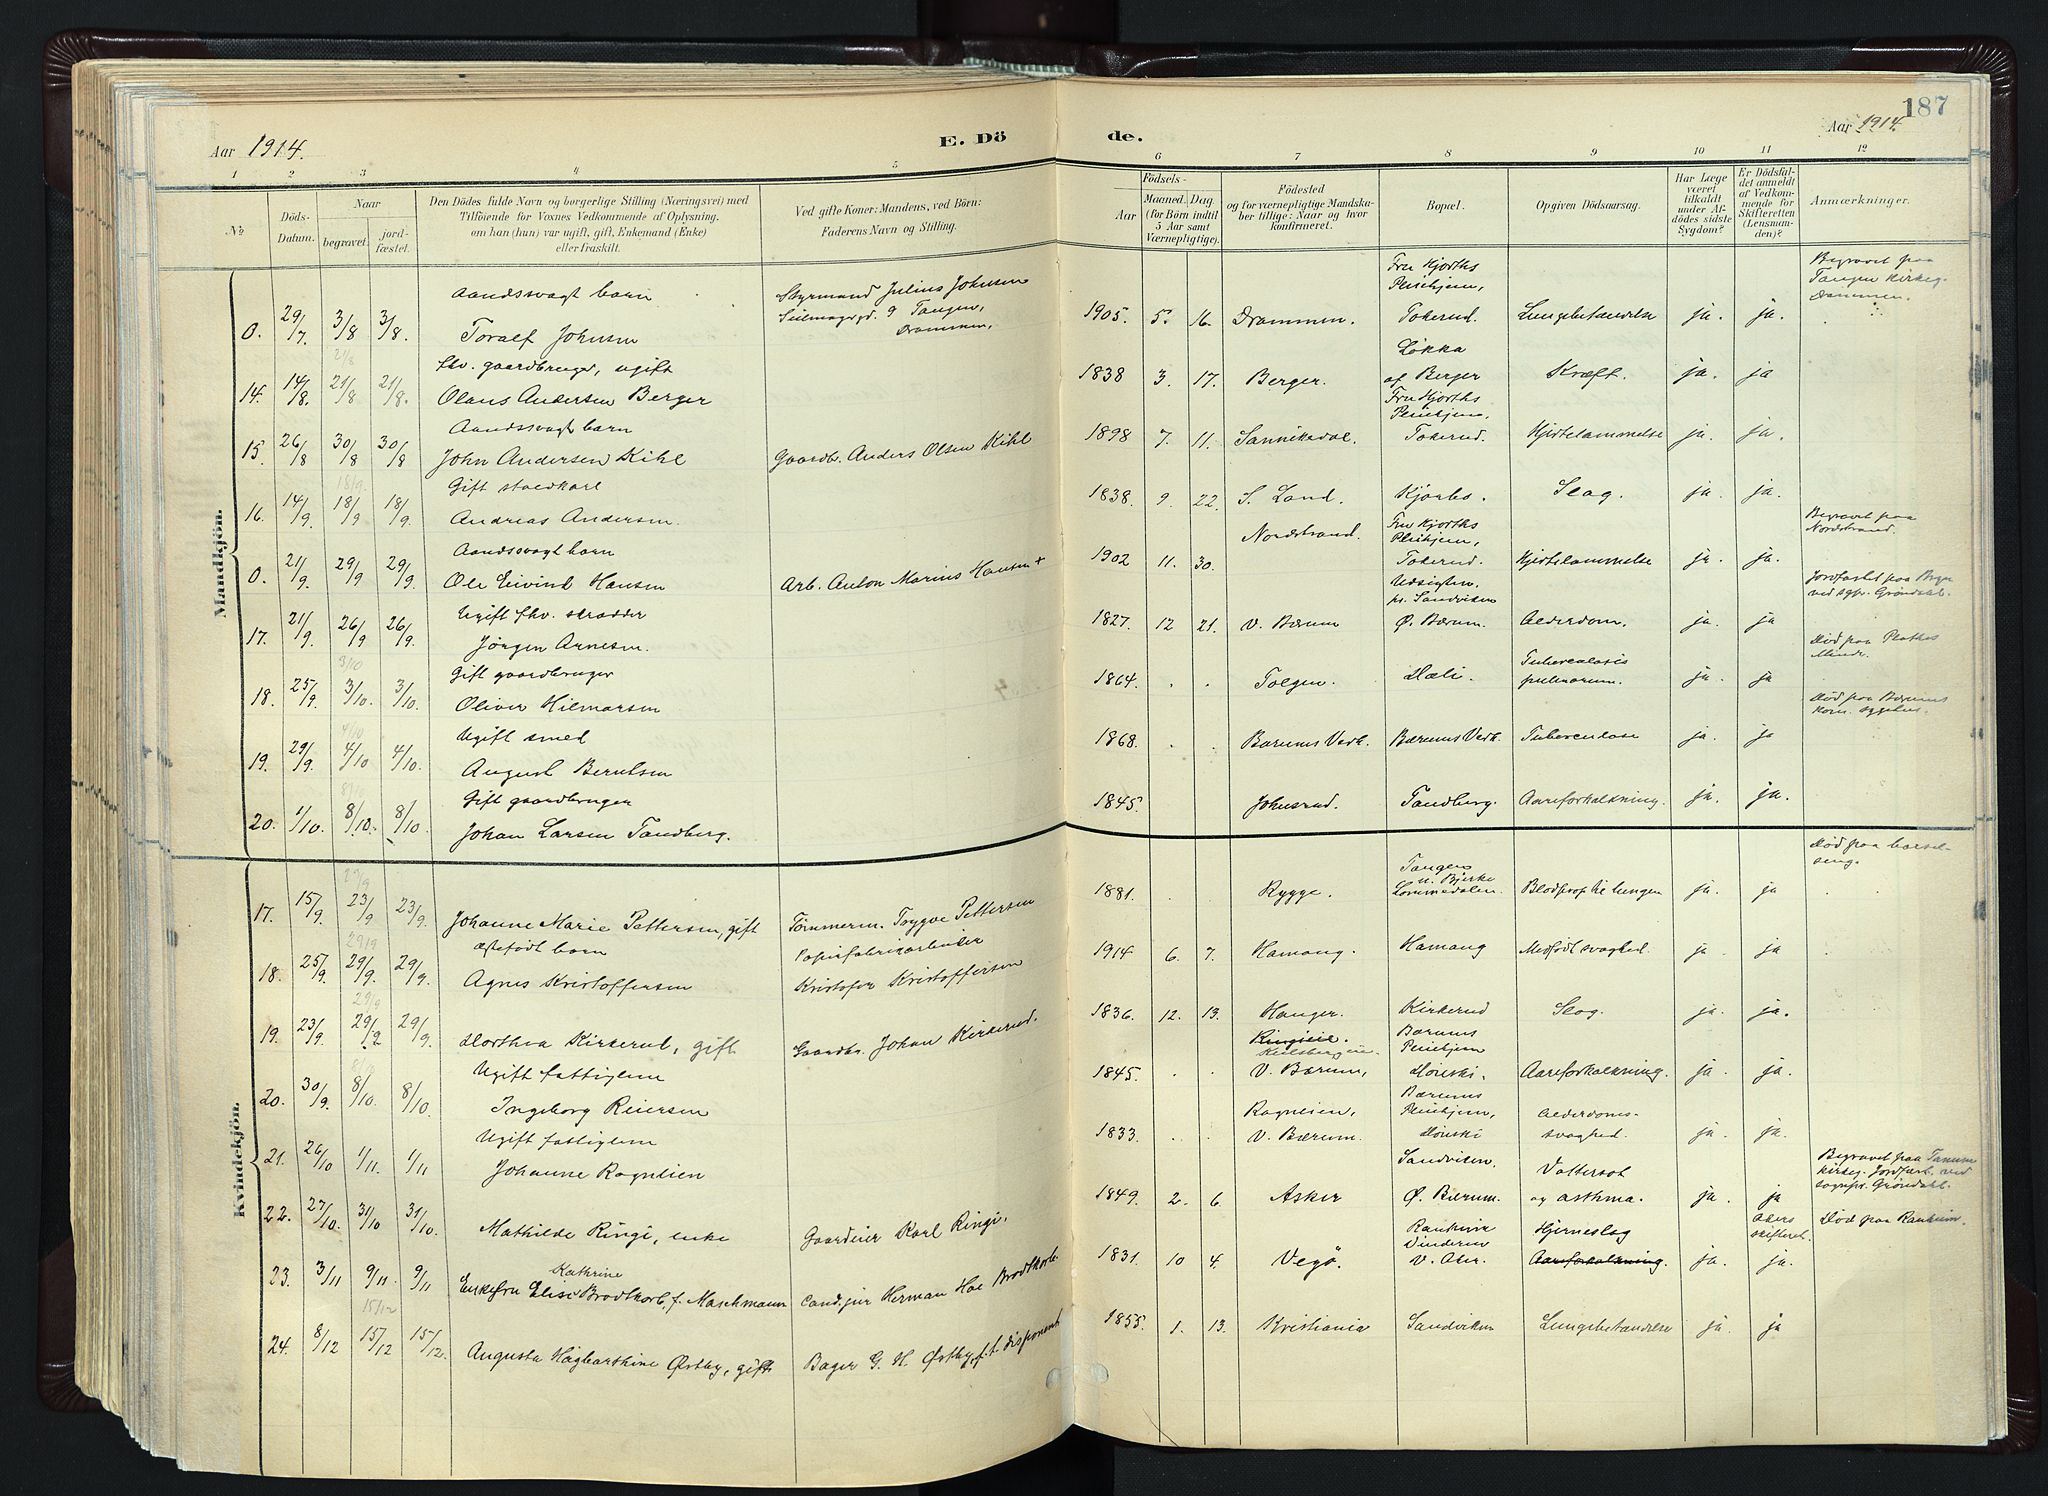 187
Aar 1914.
E. Dö
de.
Aar 1914.
1 2 3 4 5 6 7 8 9 10 11 12
No
Döds-
Datum.
Naar
begravet.
jord-
fæstet.
Den Dödes fulde Navn og borgerlige Stilling (Næringsvei) med
Tilföiende for Voxnes Vedkommende af Oplysning,
om han (hun) var ugift, gift, Enkemand (Enke)
eller fraskilt.
Ved gifte Koner: Mandens, ved Börn:
Faderens Navn og Stilling.
Födsels-
Aar
Maaned. Dag.
(for Börn indtil
5 Aar samt
Værnepligtige).
Födested
og for værnepligtige Mandska-
ber tillige: Naar og hvor
konfirmeret.
Bopæl.
Opgiven Dödsaarsag.
Har Læge
været
tilkaldt
under Af-
dödes sidste
Sygdom?
Er Dödsfal-
det anmeldt
af Vedkom-
mende for
Skifteretten
(Lensman-
den)?
Anmærkninger.
Mandkjön.
0. 29/7 3/8 3/8. Aandssvagt barn
Toralf Johnsen
Styrmand Julius Johnsen
Tangen,
Drammen.
1905. 5. 16. Drammen.
Fru Hjorths
Pleiehjem,
Tokerud.
Lungebetændelse ja. ja.
Begravet paa
Tangen kirkeg.
Drammen.
14. 14/8. 21/8 21/8. fhv. gaardbruger, ugift
Olaus Andersen Berger
1838 3. 17. Berger.
Løkka
af Berger
Kræft. ja. ja
15. 26/8 30/8 30/8 Aandssvagt barn
John Andersen Kihl
Gaardb. Anders Olsen Kihl
1898 7. 11. Sannikedal.
Fru Hjorths
Pleiehjem,
Tokerud.
Hjertelammelse ja. ja.
16. 14/9. 18/9 18/9. Gift staldkarl
Andreas Andersen.
1838. 9. 22. S. Land. Kjørbo. Slag. ja. ja.
0. 21/9. 29/9 29/9. Aandssvagt barn
Ole Eivind Hansen
Arb. Anton Marius Hansen +
1902 11. 30. Nordstrand.
Fru Hjorths
Pleiehjem,
Tokerud.
Hjertelammelse ja. ja.
Begravet paa
Nordstrand.
17. 21/9. 26/9 26/9. Ugift fhv. skrædder
Jørgen Arnesen.
1827. 12 21. V. Bærum
Udsigten
pr. Sandviken
Ø. Bærum.
Alderdom. ja. ja
18. 25/9. 3/10. 3/10. Gift gaardbruger
Oliver Hilmarsen
1864. . . Tolgen. Hæli.
Tuberculosis
pulmorum.
ja. ja
19. 29/9. 4/10 4/10. Ugift smed
August Berntsen
1868. . . Bærums Verk. Bærums Verk. Tuberculose ja. ja
Død paa Bærums
kom. sygehus.
20. 1/10. 8/10. 8/10. Gift gaardbruger
Johan Larsen Tandberg.
1845. Johnsrud. Tandberg. Aareforkalkning. ja. ja.
Kvindekjön.
17. 15/9. 23/9 23/9. Johanne Marie Pettersen, gift
Tømmerm. Trygve Pettersen
1881. Rygge.
Tangen
u. Bjerke
Lommedalen.
Blodprop til lungen ja. ja
Død paa barsel-
seng.
18. 25/9. 29/9. 29/9. ægtefødt barn
Agnes Kristoffersen
Papirfabrikarbeider
Kristofer Kristoffersen
1914 6. 7. Hamang. Hamang Medfødt svaghed. ja. ja
19. 23/9. 29/12 29/9. Dorthea Kirkerud, gift
Gaardbr. Johan Kirkerud.
1836. 12. 13. Hanger. Kirkerud Slag. ja. ja.
20. 30/9. 8/10. 8/10. Ugift fattiglem
Ingeborg Reiersen
1845. . . V. Bærum.
Bærums
Pleiehjem
Hønski.
Aareforkalkning. ja. ja.
21. 26/10 1/11. 1/11 Ugift fattiglem
Johanne Ragneien
1833. . . Ragneien,
V. Bærum.
Bærums
Pleiehjem,
Hønski
Alderdoms-
svaghed.
ja. ja.
22. 27/10. 31/10 31/10. Mathilde Ringi, enke
Gaardeier Karl Ringi.
1849. 2. 6. Asker
Sandviken,
Ø. Bærum.
Vattersot
og asthma.
ja. ja
Begravet paa Tanum
kirkeg. Jordfæst. ved
sognepr. Grøndahl.
23. 3/11 9/11. 9/11 Kathrine
Enkefru Elise Brodtkorb, f. Maschmann
Cand. jur Herman Hoe Brodtkorb.
1831. 10 4. Vegø.
Rankheim
Vinderen
V. Aker.
Hjerneslag
Aareforkalkning.
ja. ja.
skifteret.
Død paa Rankheim.
24. 8/12 15/12 15/12. Augusta Hagbarthine Østby, gift
Bager G. H. Østby, f. t. disponent
1855. 1. 13. Kristiania Sandviken Lungebetændelse ja. ja